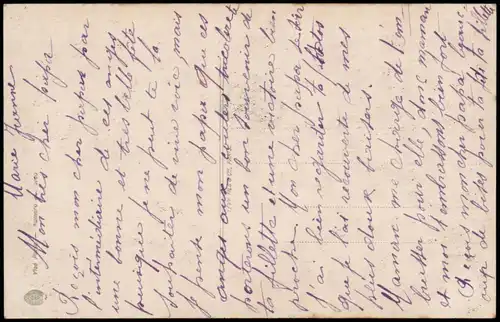 Marie Jeanne
Mon très cher papa
Reçois mon cher papa par
l'intermédiaire de ces anges
une bonne et très belle fête
puisque je ne peut te la
souhaiter de vive voix mais
je pense mon papa que ces
anges aux tricolores
porterons un bon souvenir de
ta fillette et une victoire bien
proche. Mon cher papa
J'ai bien regarder ta
que j'ai recouverte de mes
plus doux baisers.
Maman me charge de t'em
brasser pour elle, donc maman
et moi t'embrassons bien fort
Reçois mon cher papa
de bises pour ta